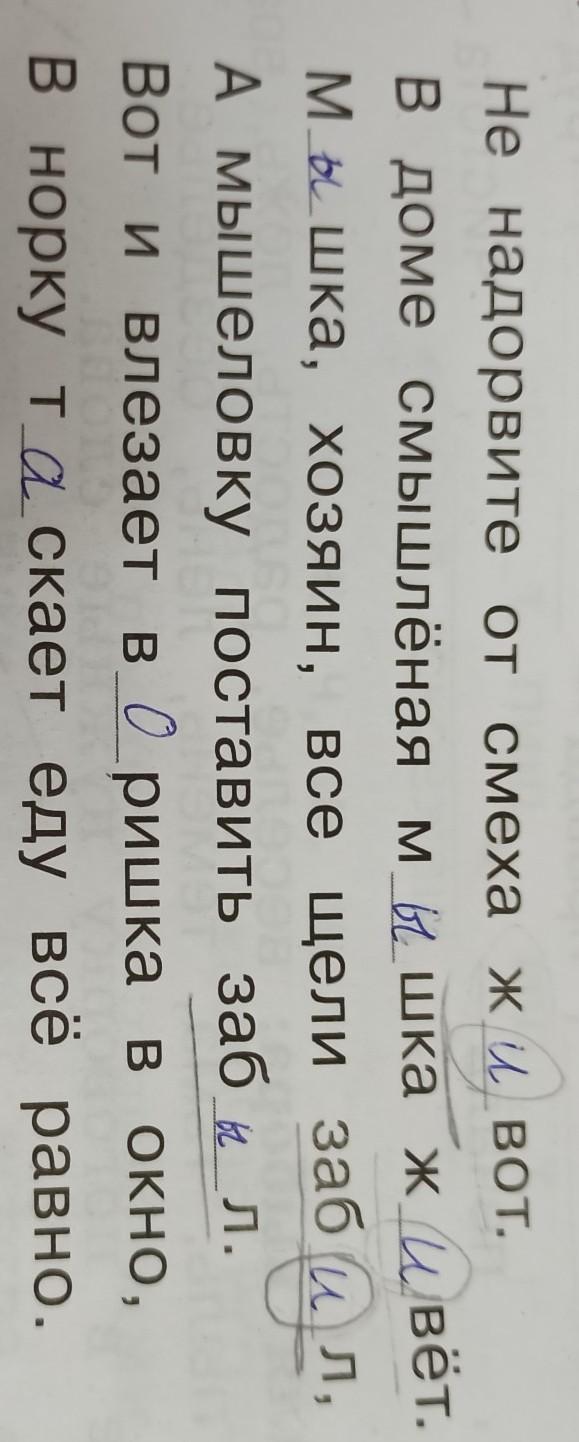 Не надорвите от смеха живот.
В доме смышлёная мышка живёт.
Мышка, хозяин, все щели забил,
А мышеловку поставить забыл.
Вот и влезает воришка в окно,
В норку таскает еду всё равно.